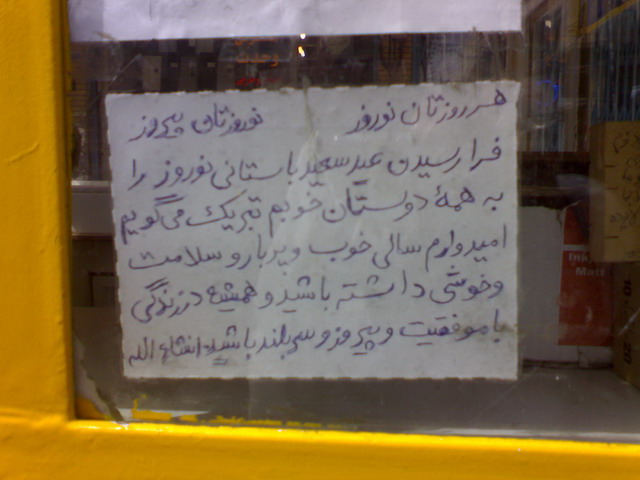 هر روزتان نوروز نوروزتان پیروز
فرا رسیدن عید سعید باستانی نوروز را
به همهٔ دوستان خوبم تبریک می‌گویم
امیدوارم سالی خوب و پر بار و سلامت
و خوشی داشته باشید و همیشه در زندگی
با موفقیت و پیروز و سربلند باشید انشاء الله
Ink
Matt